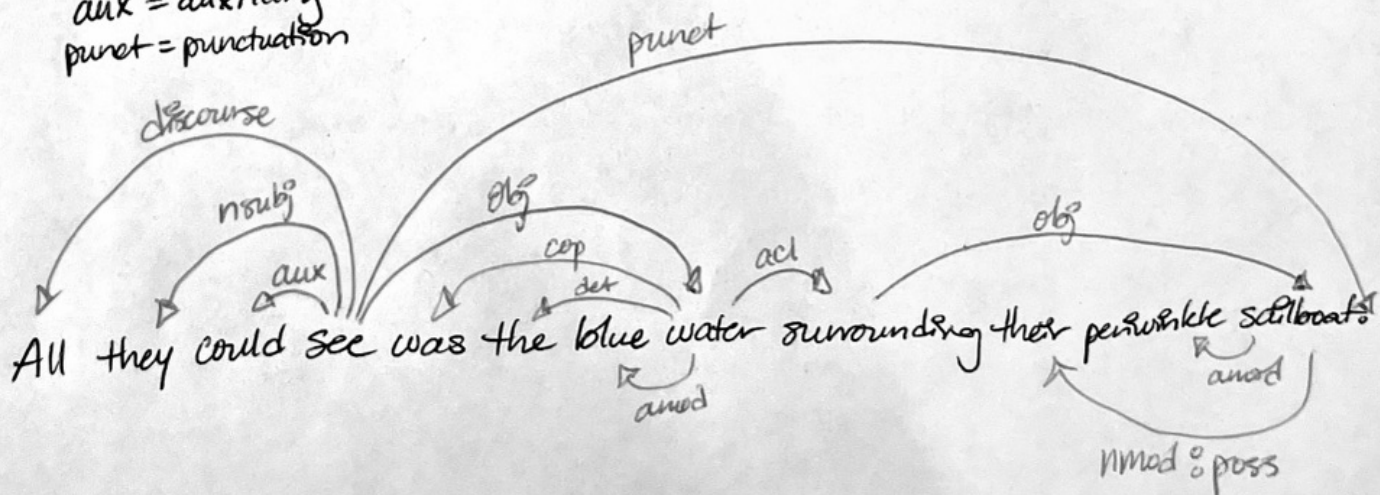 aux = auxiliary
punct = punctuation
punct
discourse
nsubj
obj
obj
cop
acl
aux
det
All they could see was the blue water surrounding their periwinkle sailboat.
amod
amod
nmod : poss